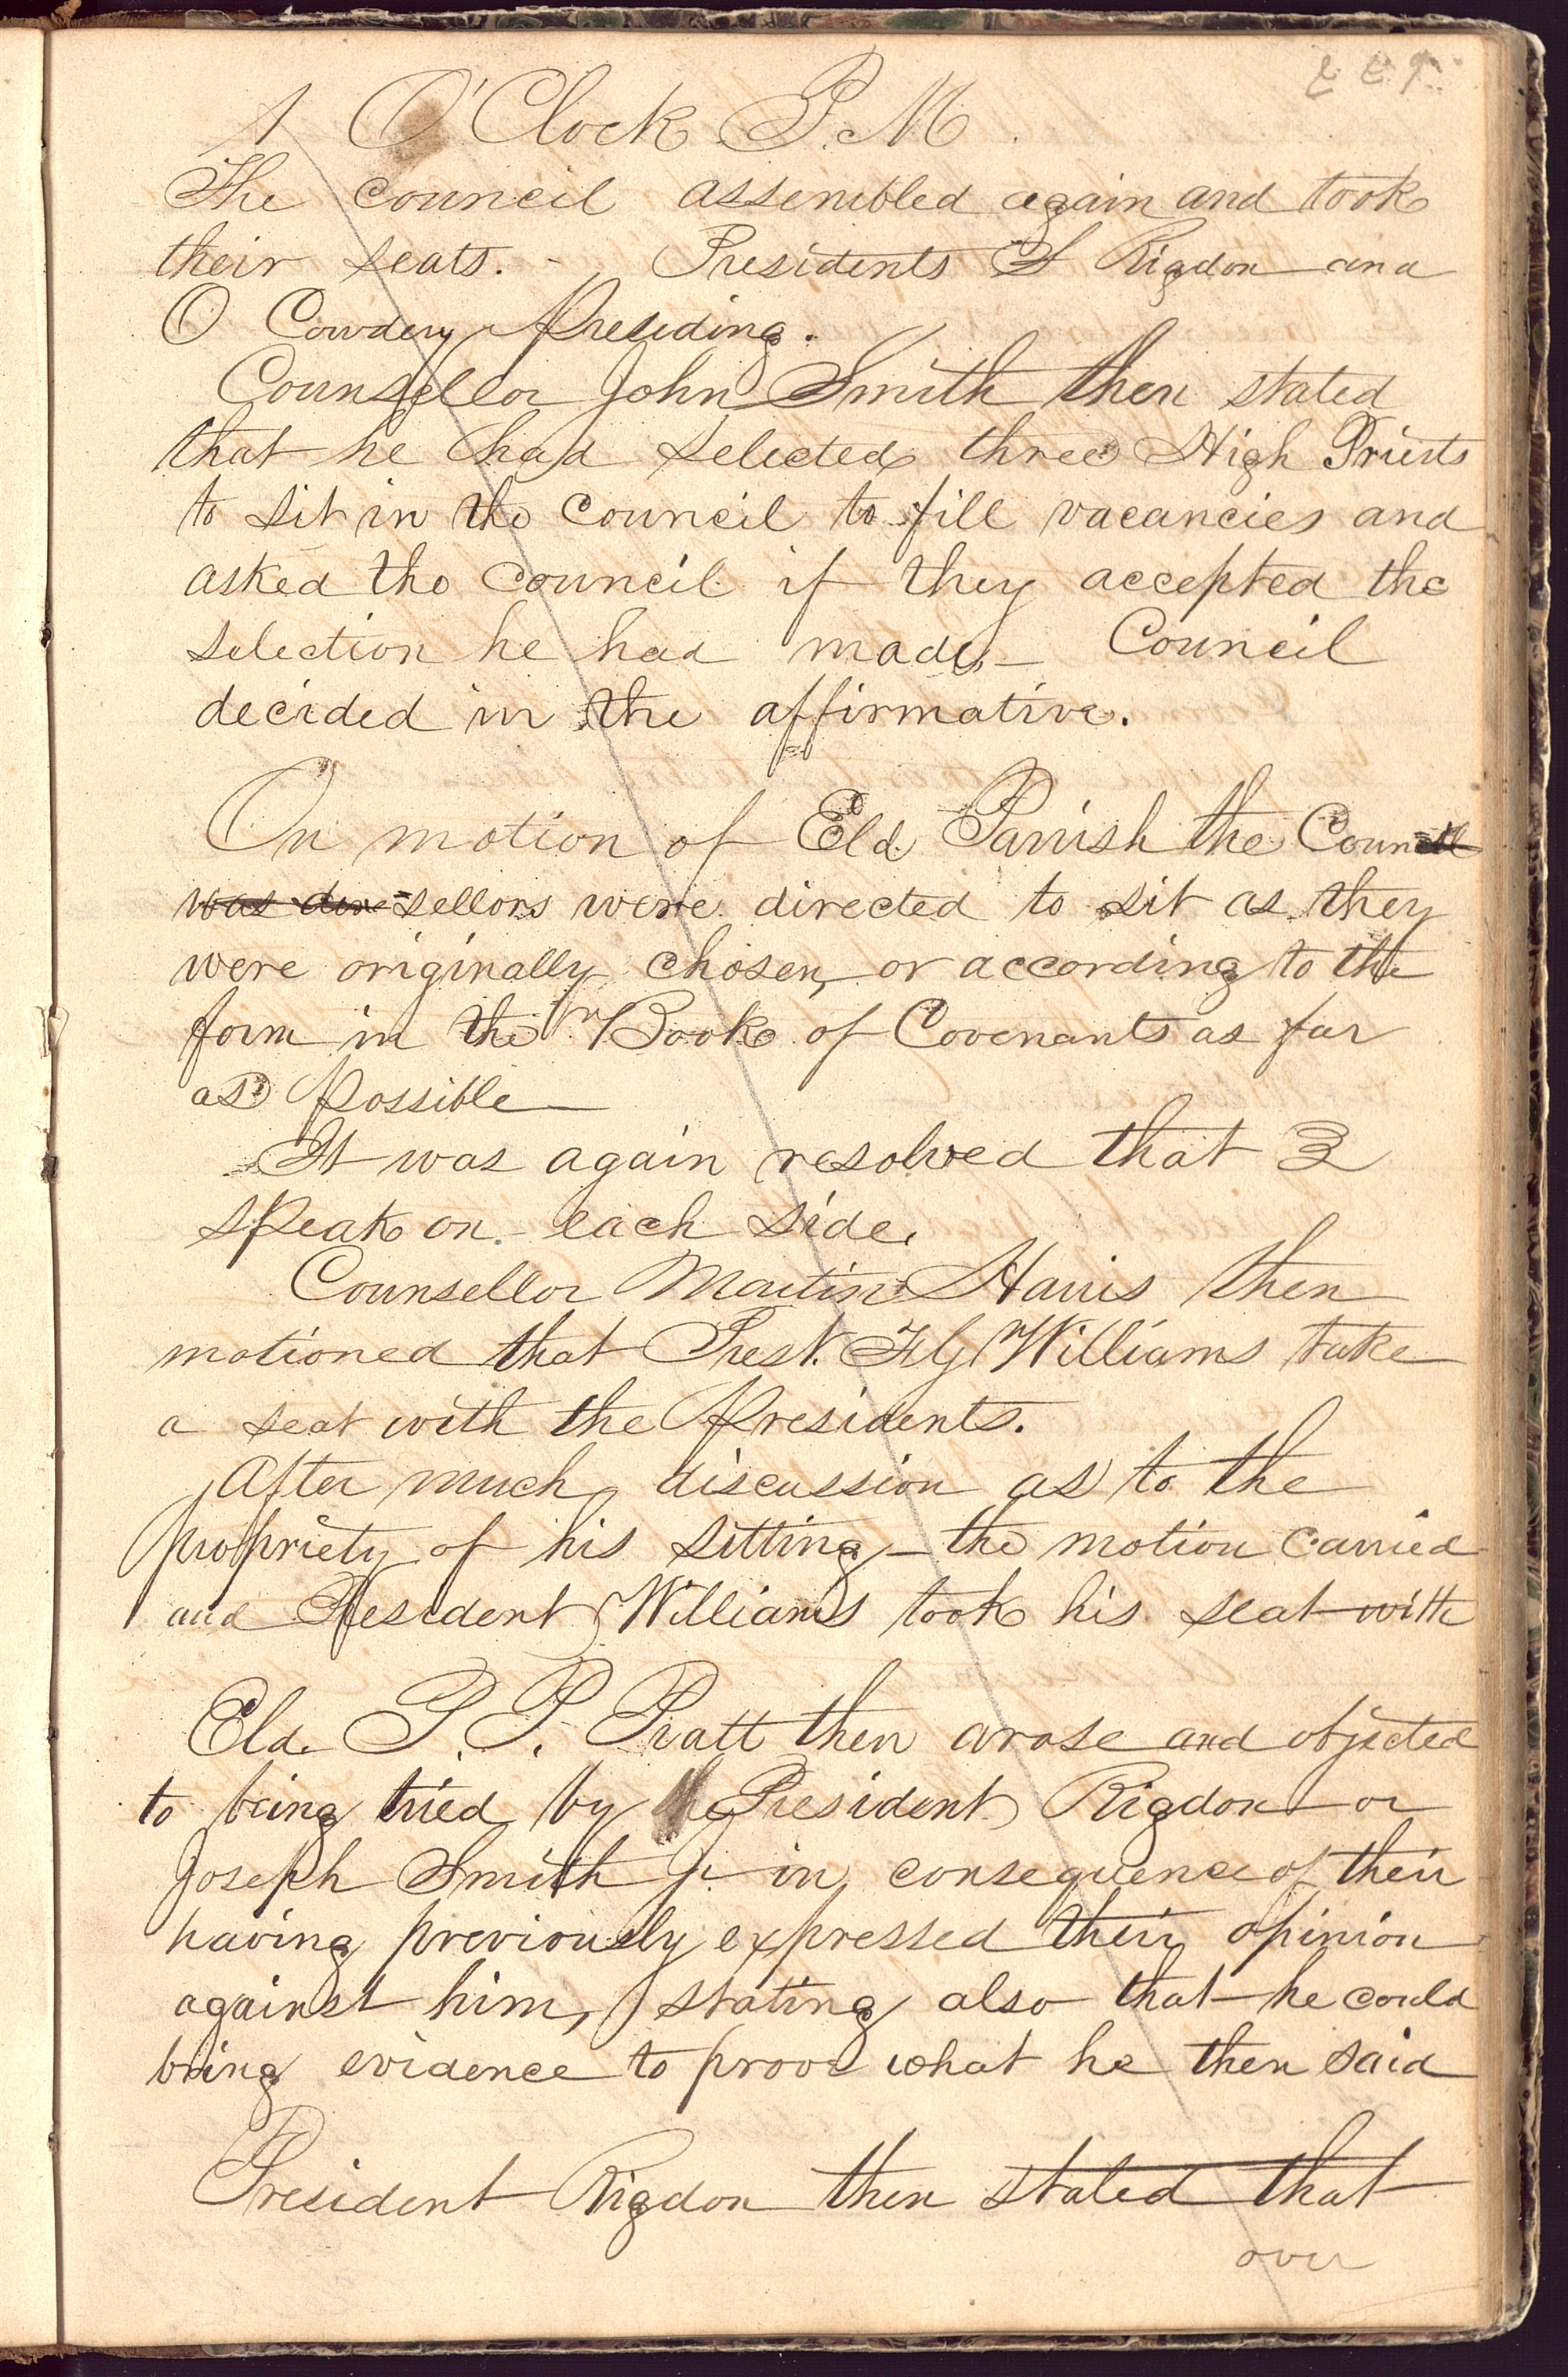 1 O'Clock P. M.
The council assembled again and took
their seats. - Presidents S Rigdon and
O Cowdery Presiding.
Counsellor John Smith then stated
that he had selected three High Priests
to sit in the council to fill vacancies and
asked the council if they accepted the
selection he had made, — Council
decided in the affirmative.
On motion of Eld. Parrish the Council
was dire-sellors were directed to sit as they
were originally chosen, or according to the
form in the Book of Covenants as far
as possible —
It was again resolved that 3
speak on each side.
Counsellor Martin Harris then
motioned that Prest. F G Williams take
a seat with the Presidents.
After much discussion as to the
propriety of his sitting — the motion carried
and President Williams took his seat with
Eld. P. P. Pratt then arose and objected
to being tried by the President Rigdon or
Joseph Smith Jr. in consequence of their
having previously expressed their opinion
against him, stating also that he could
bring evidence to prove what he then said
President Rigdon then stated that
over